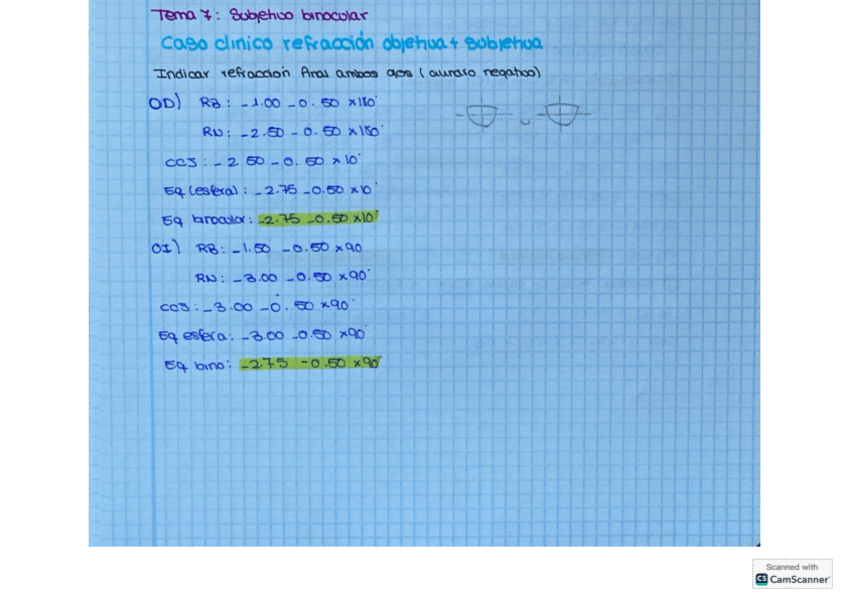 Tema 7: Subjetivo binocular
Caso clinico refracción objetiva + subjetiva
Indicar refraccion final ambos ojos (cilindro negativo)
OD) RB: -1.00 -0.50 x180°
RN: -2.50 -0.50 x180°
CCJ: -2.50 -0.50 x10°
Eq (esfera): -2.75 -0.50 x10°
Eq binocular: -2.75 -0.50 x10°
OI) RB: -1.50 -0.50 x90
RN: -3.00 -0.50 x90°
CCJ: -3.00 -0.50 x90°
Eq esfera: -3.00 -0.50 x90°
Eq bino: -2.75 -0.50 x90°
Scanned with
CS CamScanner